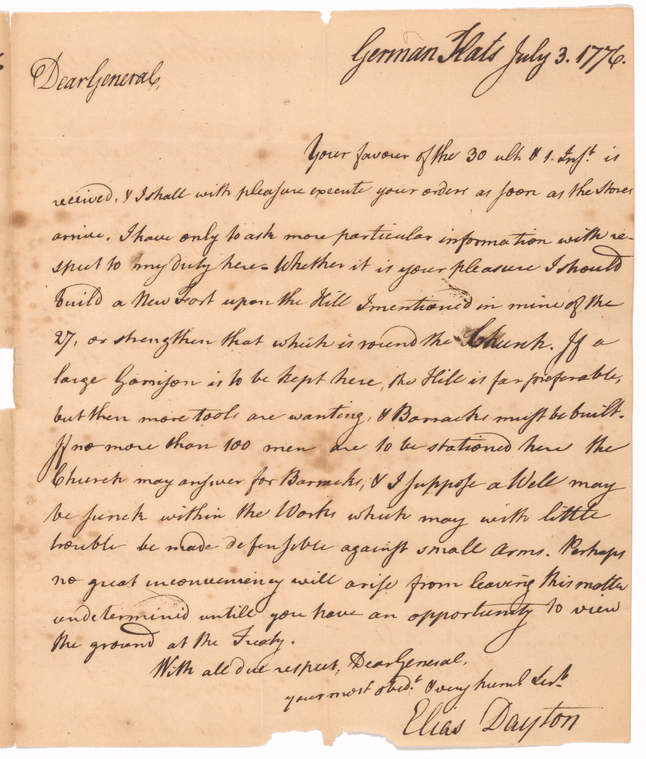 German Flats July 3. 1776.
Dear General,
Your favour of the 30 ult. & 1. Inst. is
received, & I shall with pleasure execute your orders as soon as the Stores
arrive. I have only to ask more particular information with re-
spect to my duty here = Whether it is your pleasure I should
build a New Fort upon the Hill I mentioned in mine of the
27, or strengthen that which is round the Church. If a
large Garrison is to be kept here, the Hill is far preferable,
but then more tools are wanting, & Barracks must be built.
If no more than 100 men are to be stationed here the
Church may answer for Barracks, & I suppose a Well may
be sunck within the Works which may with little
trouble be made defensible against small arms. Perhaps
no great inconveniency will arise from leaving this matter
undetermined untill you have an opportunity to view
the ground at the Treaty.
With all due respect, Dear General,
your most obedt. & very huml Servt.
Elias Dayton